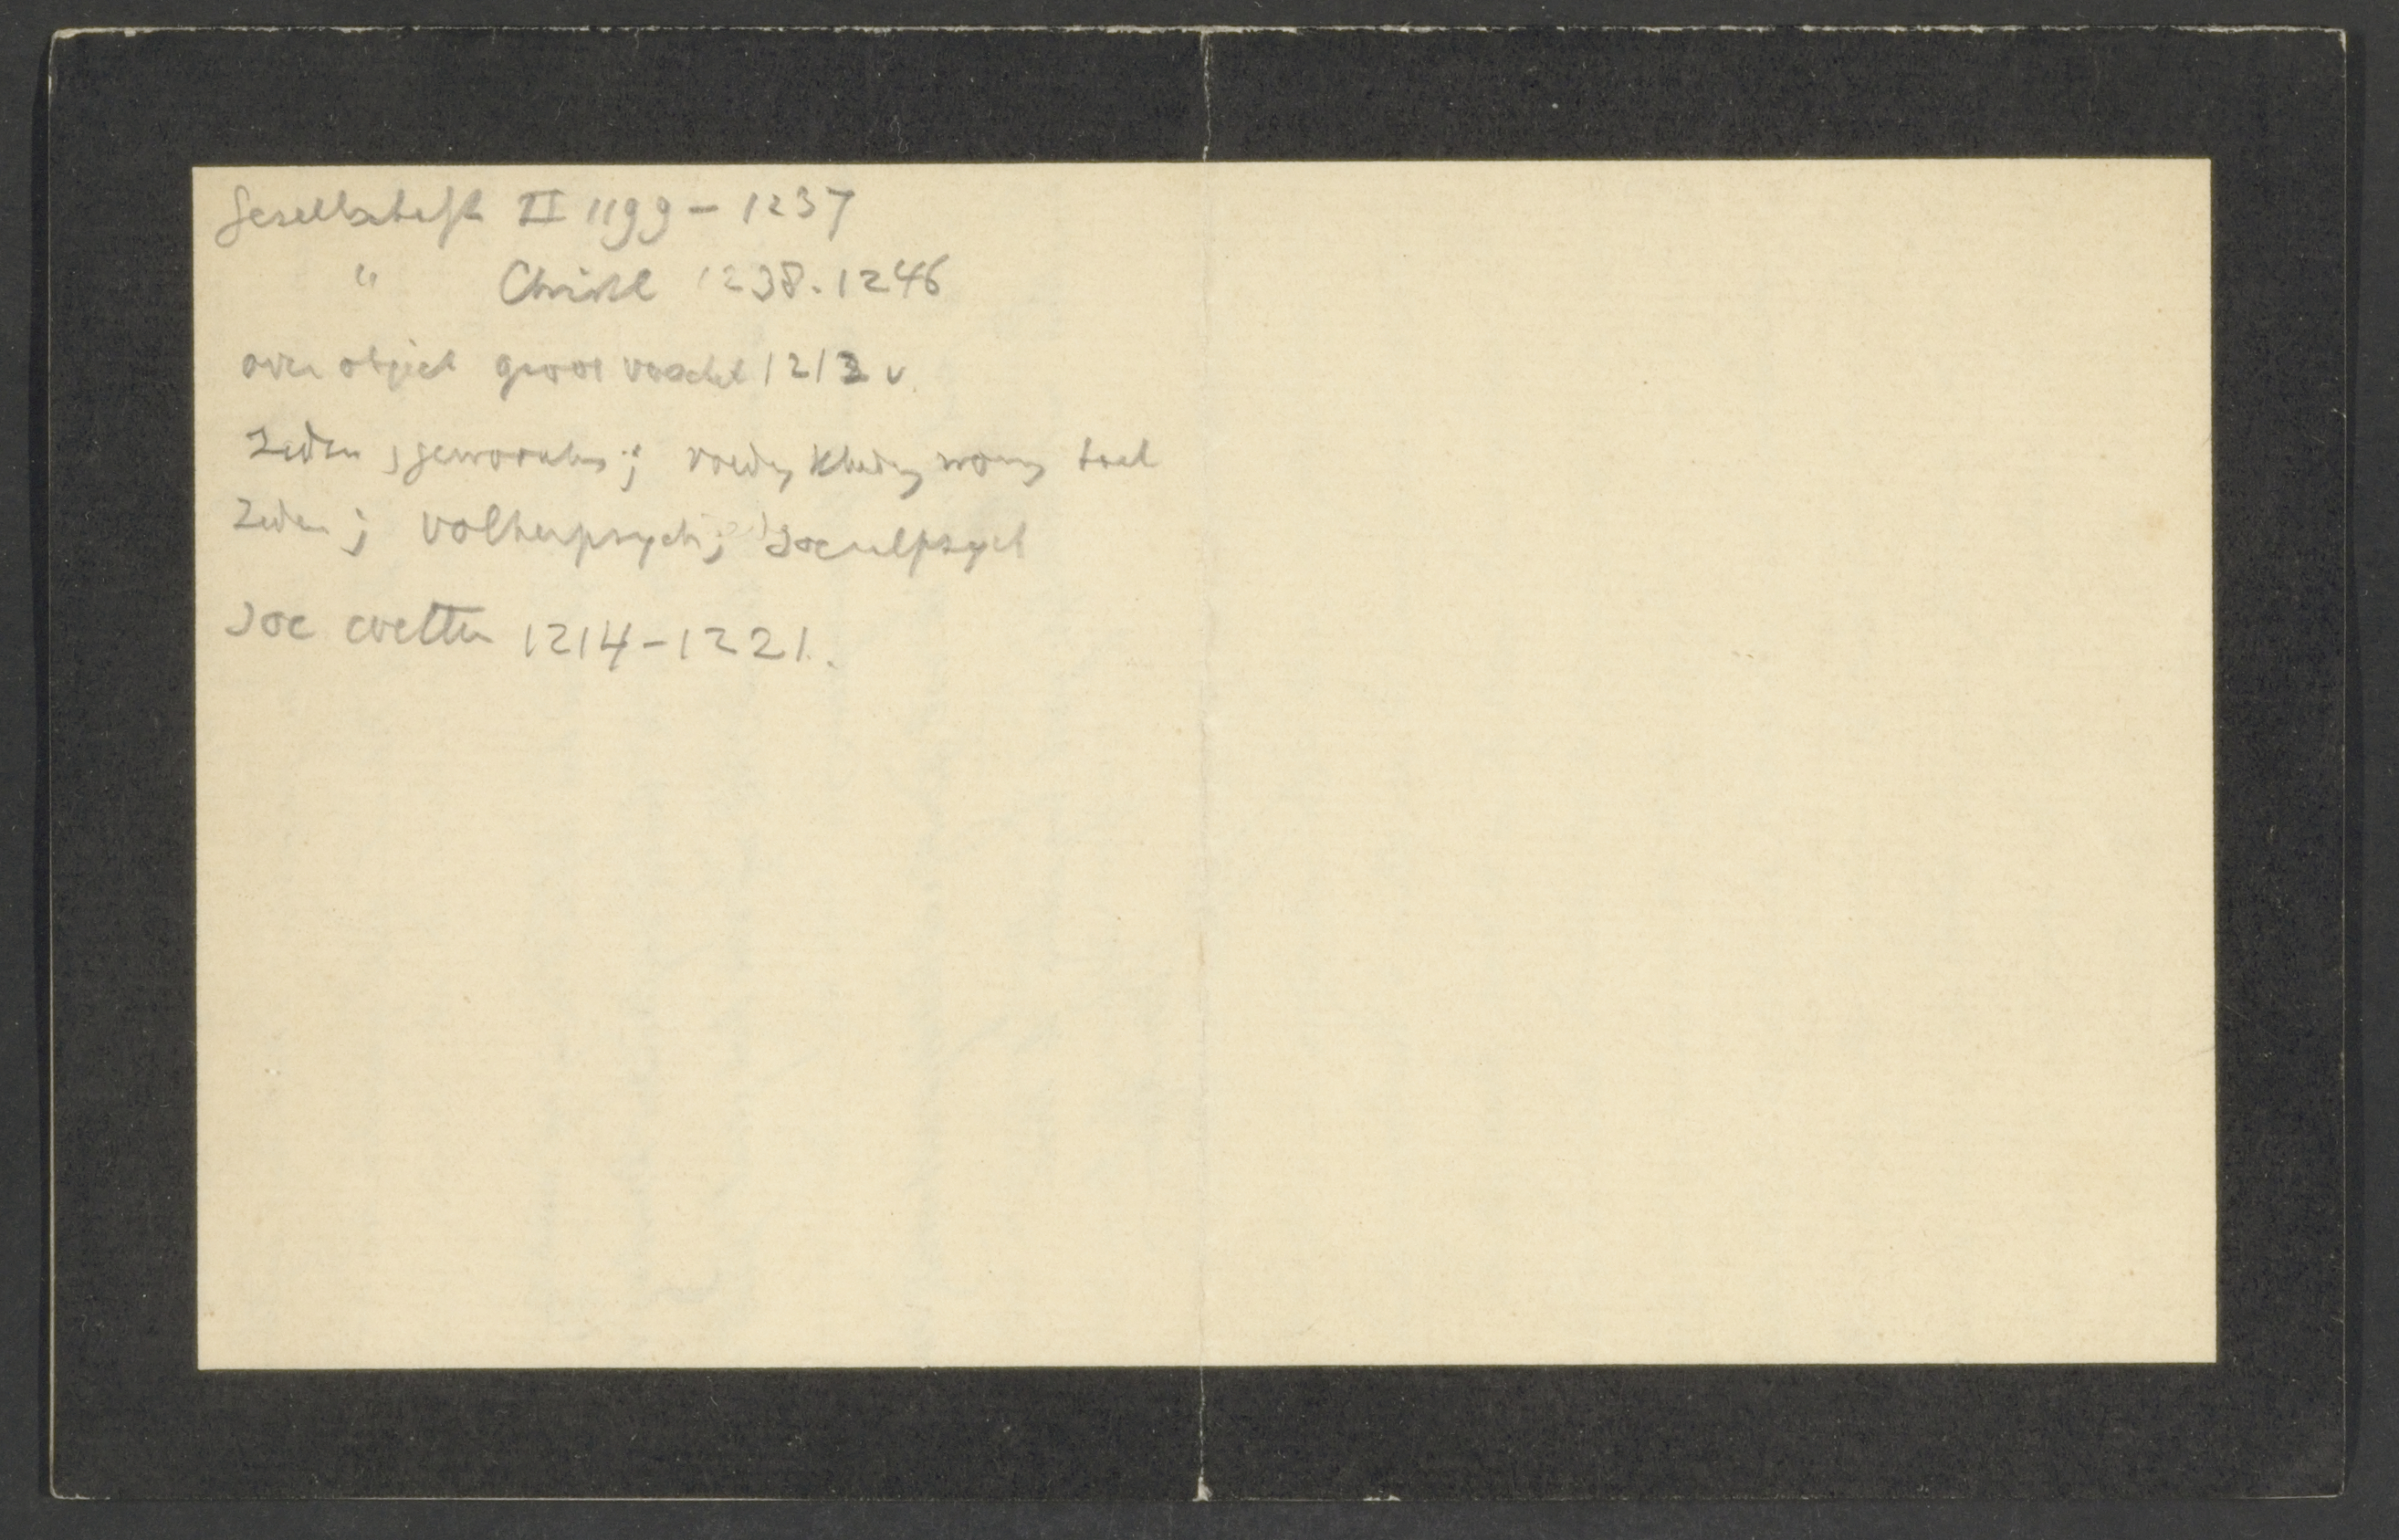 Gesellschaft II 1199 - 1237
" Christl 1238. 1246
over object groot verschil 1213 v.
Zeden, gewoonten; voeding kleding woning taal
Zeden; volkerpsych; Socialpsych
Soc wetten 1214-1221.